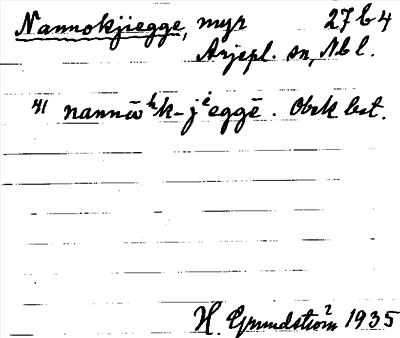 Nannokjiegge, myr 27 b 4
Arjepl. sn, Nbl.
41 nannω̄ ᵏk-jⁱeggē. Obek best.
H. Grundström 1935